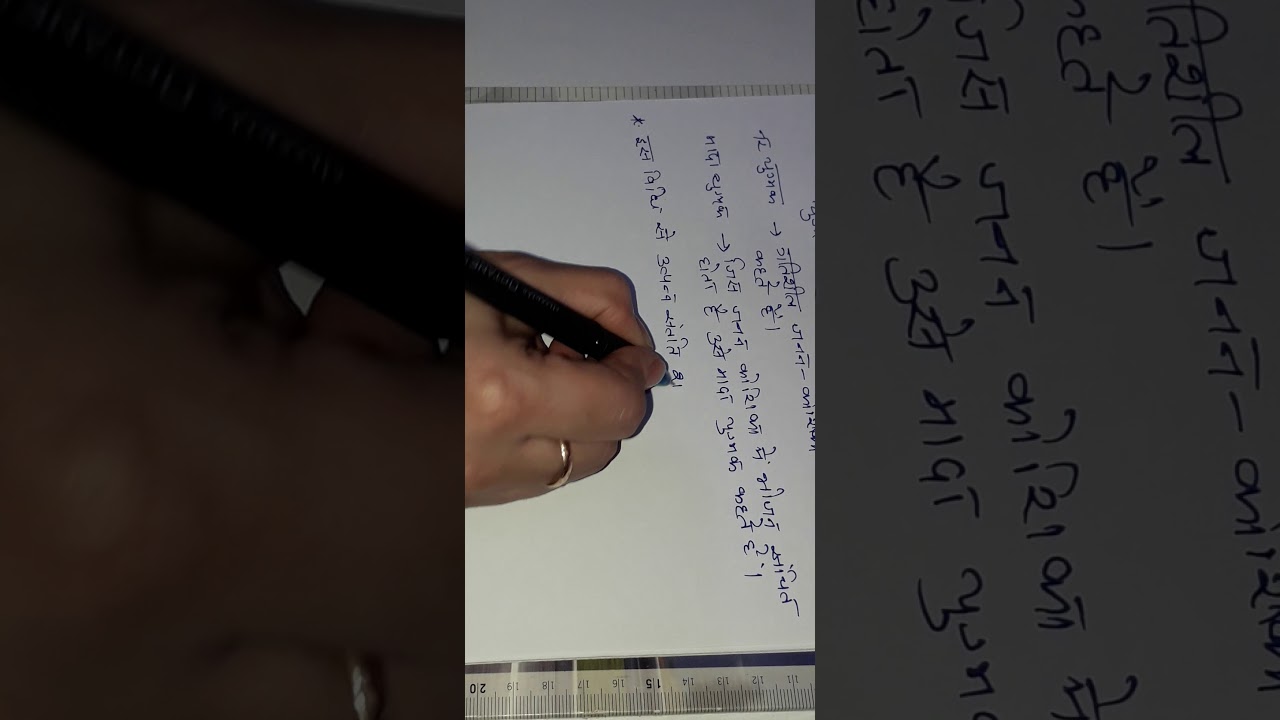 नर युग्मक → गतिशील जनन-कोशिका
कहते हैं।
मादा युग्मक → जिस जनन कोशिका में भोजन संचित
होता है उसे मादा युग्मक कहते हैं।
* इस विधि से उत्पन्न संतति